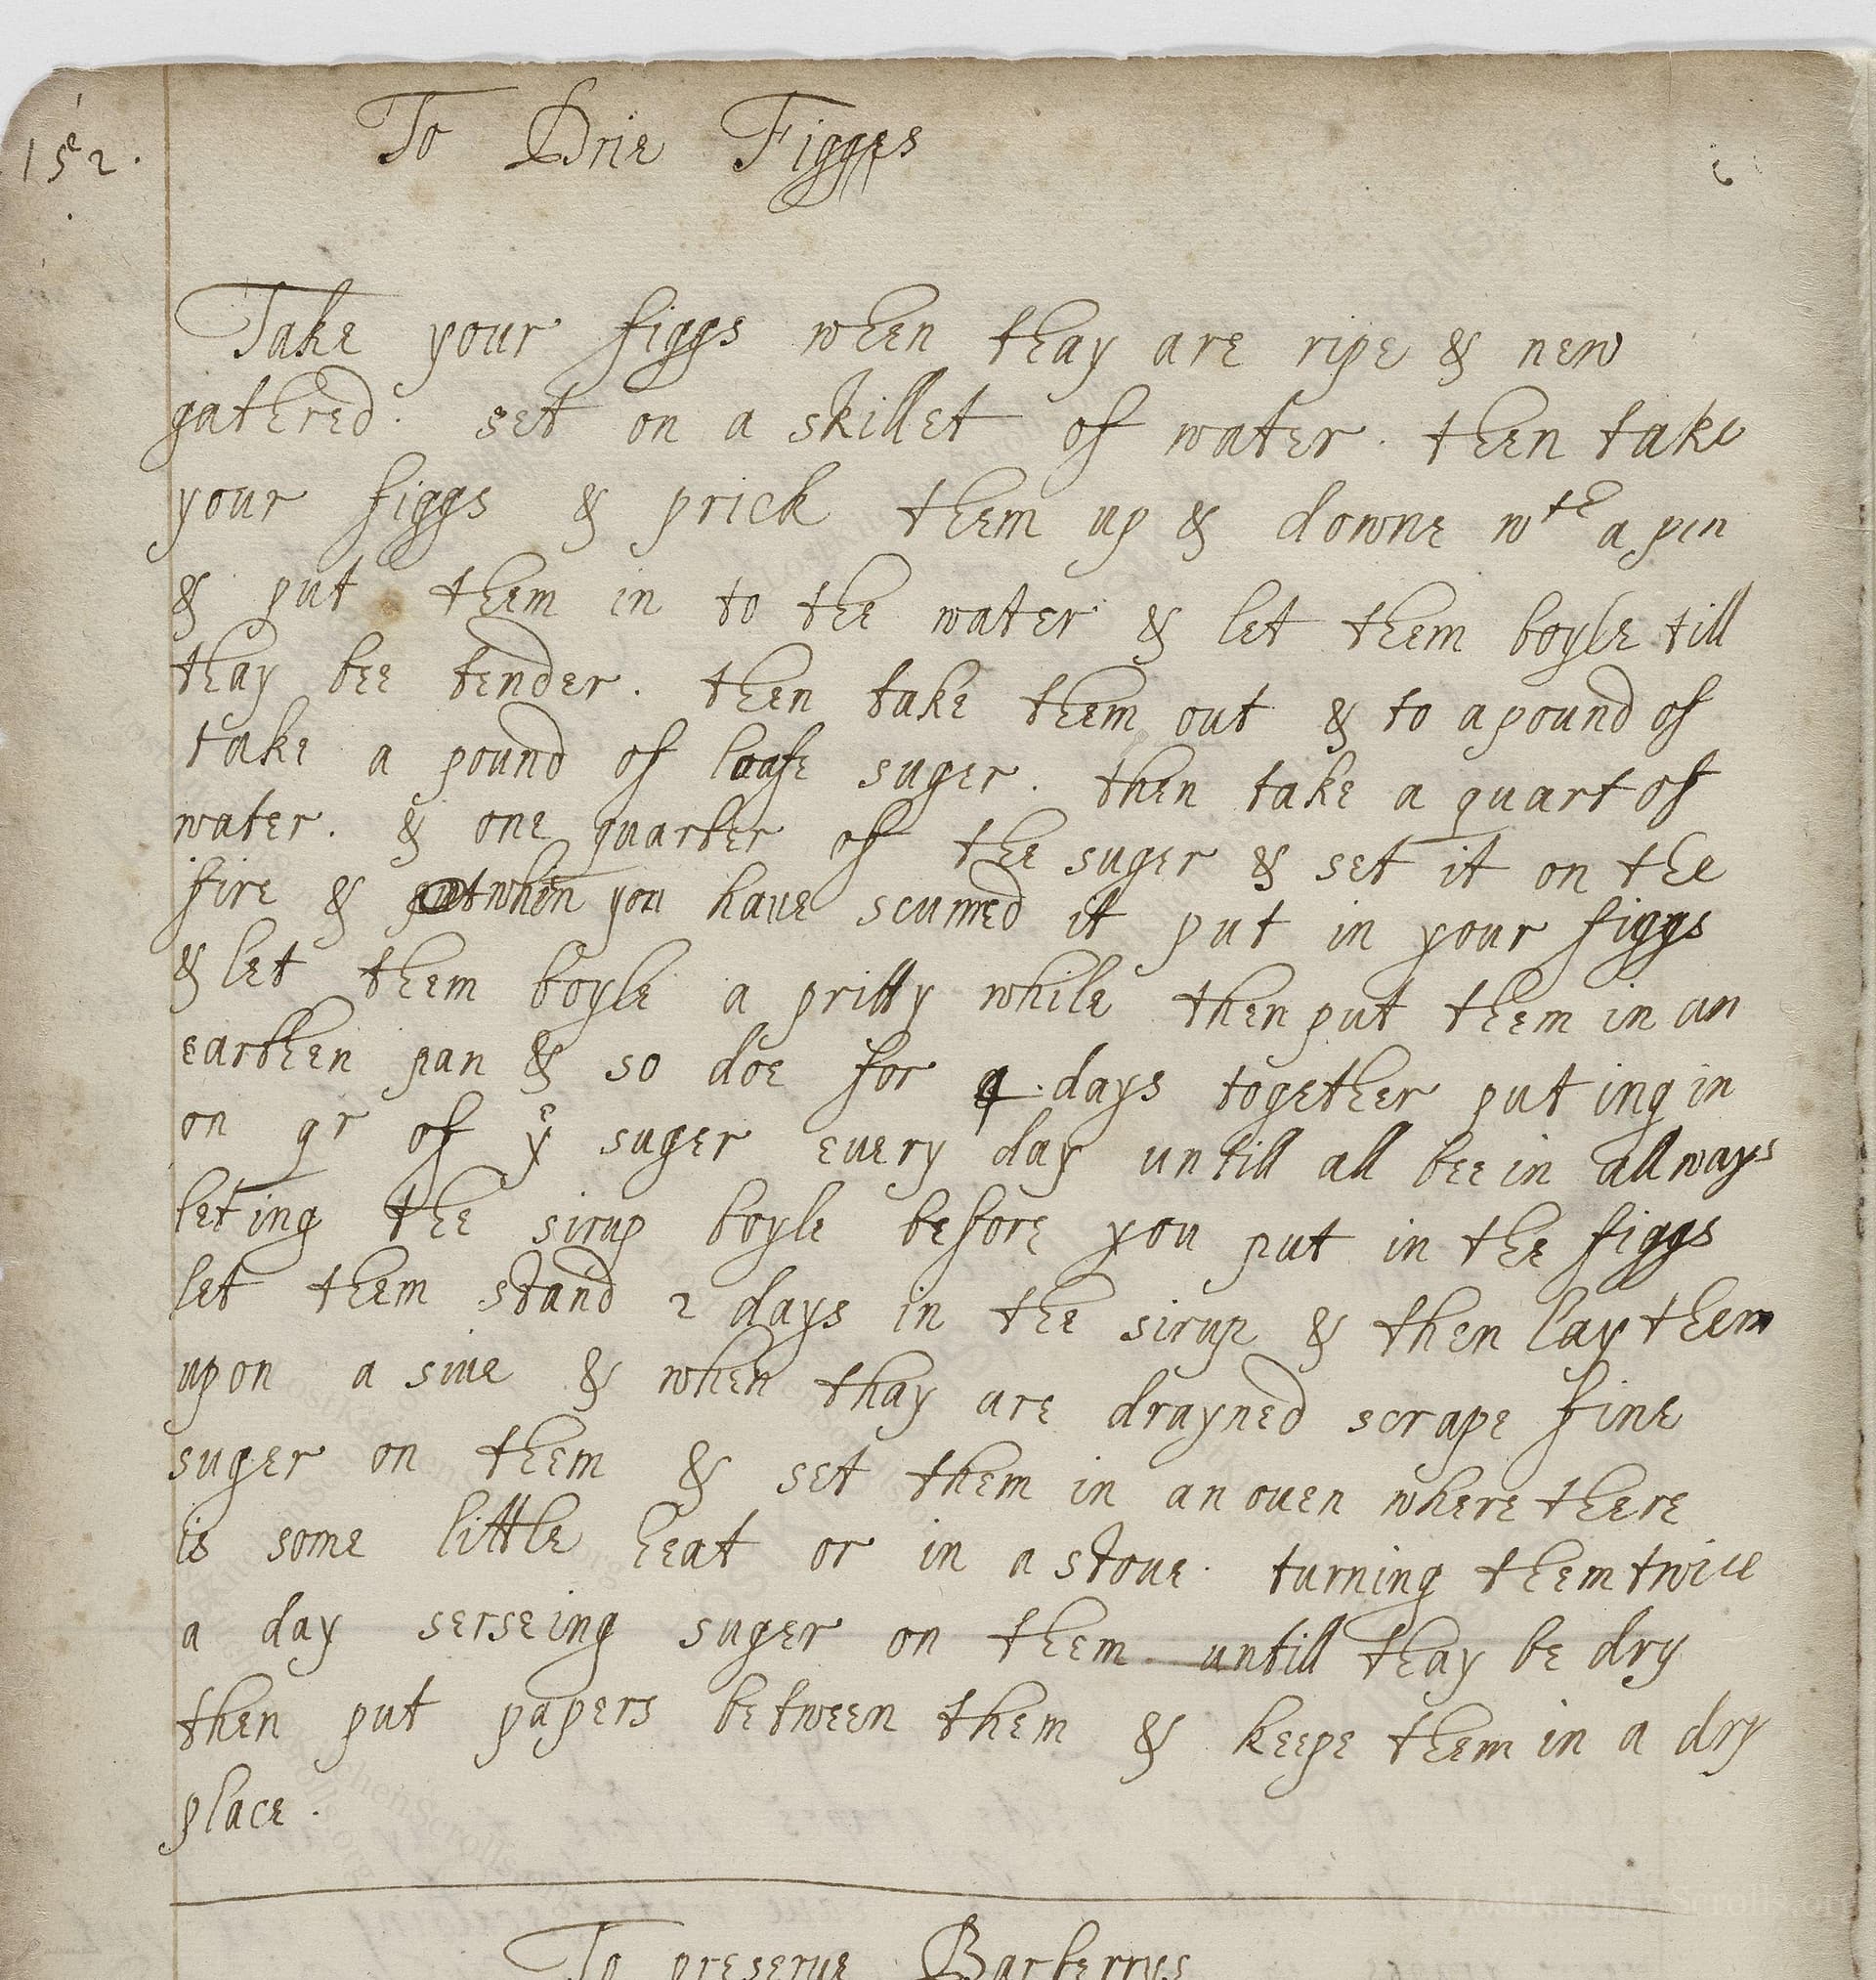 152.
6
To Drie Figges
Take your figgs when thay are ripe & new
gathered. set on a skillet of water. then take
your figgs & prick them up & downe wth a pin
& put them in to the water & let them boyle till
thay bee tender. then take them out & to a pound of
take a pound of loafe suger. then take a quart of
water. & one quarter of the suger & set it on the
fire & when you have scumed it put in your figgs
& let them boyle a pritty while then put them in an
earthen pan & so doe for 4 days together put ing in
on qr of ye suger euery day untill all bee in allways
leting the sirup boyle before you put in the figgs
let them stand 2 days in the sirup & then lay them
upon a siue & when thay are drayned scrape fine
suger on them & set them in an ouen where there
is some little heat or in a stoue. turning them twice
a day serseing suger on them untill thay be dry
then put papers between them & keepe them in a dry
place.
To preserue Barberrys